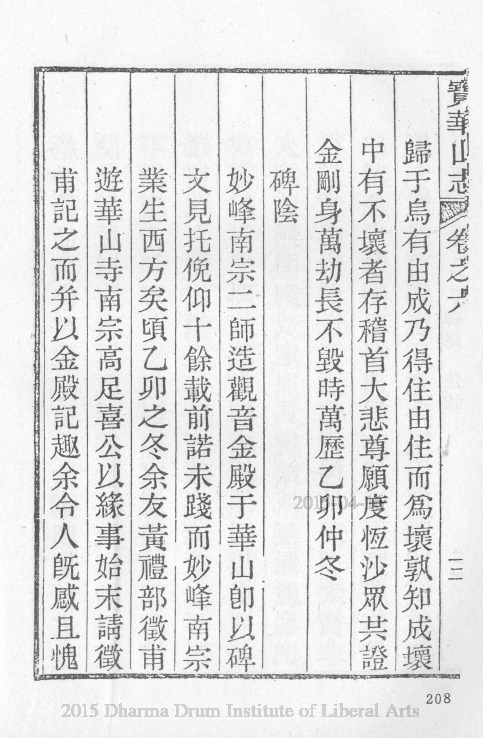 寶華山志 卷之六 十二
歸于烏有由成乃得住由住而爲壞孰知成壞
中有不壞者存稽首大悲尊願度恆沙眾共證
金剛身萬劫長不毀時萬歷乙卯仲冬
碑陰
妙峰南宗二師造觀音金殿于華山卽以碑
文見托俛仰十餘載前諾未踐而妙峰南宗
業生西方矣頃乙卯之冬余友黃禮部徵甫
遊華山寺南宗高足喜公以緣事始末請徵
甫記之而并以金殿記趣余令人旣感且愧
208
2015 Dharma Drum Institute of Liberal Arts